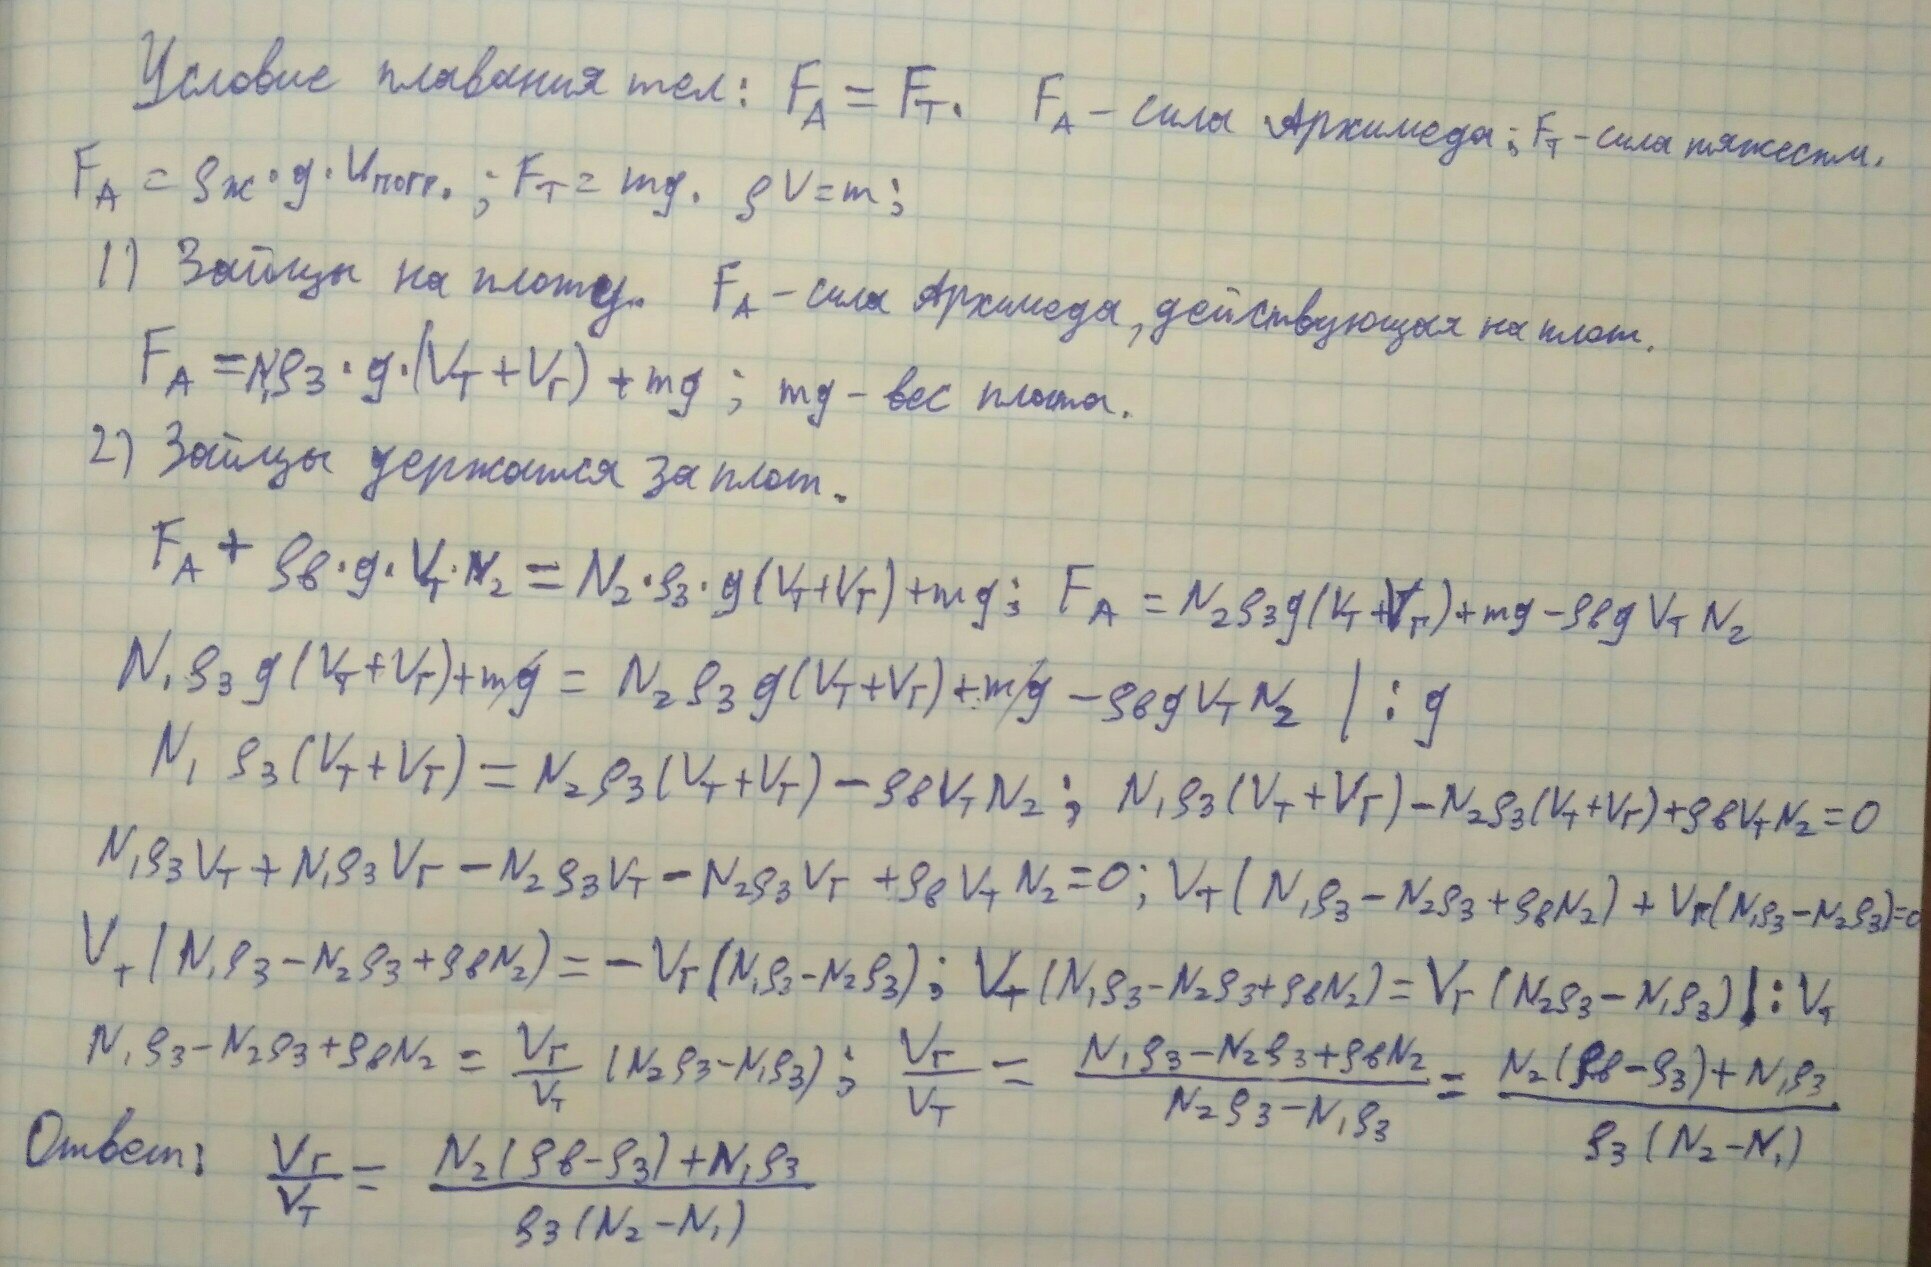 Условие плавания тел: F_A = F_T. F_A – сила Архимеда; F_T – сила тяжести.
F_A = ρж·g·Vпогр.; F_T = mg. ρV=m;
1) Зайцы на плоту. F_A – сила Архимеда, действующая на плот.
F_A = N₁ρ₃·g·(V_T+V_Г)+mg; mg – вес плота.
2) Зайцы держатся за плот.
F_A + ρв·g·V_T·N₂ = N₂·ρ₃·g(V_T+V_Г)+mg; F_A = N₂ρ₃g(V_T+V_Г)+mg–ρвgV_TN₂
N₁ρ₃g(V_T+V_Г)+mg = N₂ρ₃g(V_T+V_Г)+mg–ρвgV_TN₂ |:g
N₁ρ₃(V_T+V_Г) = N₂ρ₃(V_T+V_Г)–ρвV_TN₂; N₁ρ₃(V_T+V_Г)–N₂ρ₃(V_T+V_Г)+ρвV_TN₂=0
N₁ρ₃V_T+N₁ρ₃V_Г–N₂ρ₃V_T–N₂ρ₃V_Г+ρвV_TN₂=0; V_T(N₁ρ₃–N₂ρ₃+ρвN₂)+V_Г(N₁ρ₃–N₂ρ₃)=0
V_T(N₁ρ₃–N₂ρ₃+ρвN₂)=–V_Г(N₁ρ₃–N₂ρ₃); V_T(N₁ρ₃–N₂ρ₃+ρвN₂)=V_Г(N₂ρ₃–N₁ρ₃) |:V_T
N₁ρ₃–N₂ρ₃+ρвN₂ = V_Г/V_T (N₂ρ₃–N₁ρ₃); V_Г/V_T = (N₁ρ₃–N₂ρ₃+ρвN₂)/(N₂ρ₃–N₁ρ₃) = (N₂(ρв–ρ₃)+N₁ρ₃)/(ρ₃(N₂–N₁))
Ответ: V_Г/V_T = (N₂(ρв–ρ₃)+N₁ρ₃)/(ρ₃(N₂–N₁))